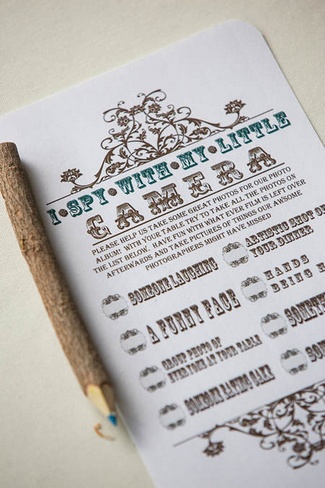 I·SPY·WITH·MY·LITTLE
CAMERA
PLEASE HELP US TAKE SOME GREAT PHOTOS FOR OUR PHOTO
ALBUM! WITH YOUR TABLE TRY TO TAKE ALL THE PHOTOS ON
THE LIST BELOW. HAVE FUN WITH WHAT EVER FILM IS LEFT OVER
AFTERWARDS AND TAKE PICTURES OF THINGS OUR AWESOME
PHOTOGRAPHERS MIGHT HAVE MISSED
SOMEONE LAUGHING
A FUNNY FACE
GROUP PHOTO OF
EVERYONE AT YOUR TABLE
SOMEONE EATING CAKE
ARTISTIC SHOT OF
YOUR DINNER
HANDS
BEING